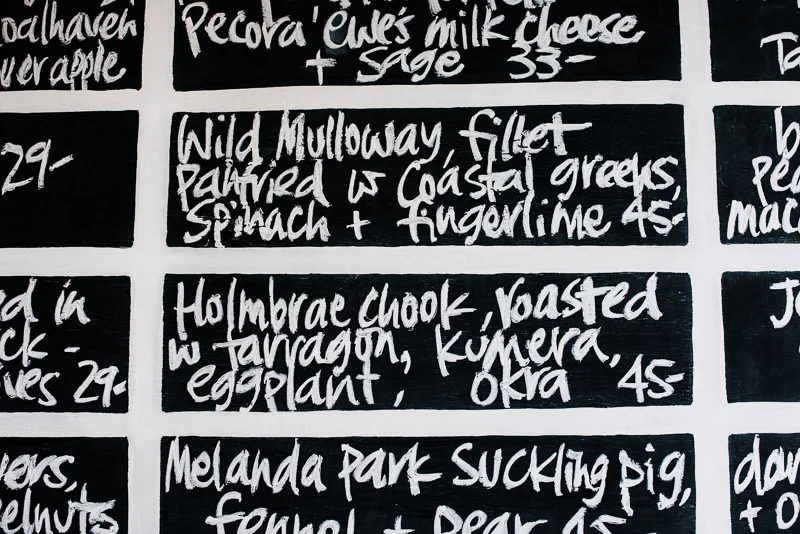 Pecora ewe's milk cheese
+ Sage 33-
Wild Mulloway, fillet
panfried w coastal greens,
Spinach + fingerlime 45-
Holmbrae chook, roasted
w tarragon, kumera,
eggplant, okra 45-
Melanda Park Suckling pig,
fennel + pear 45
29-
ed in
ck -
ves 29-